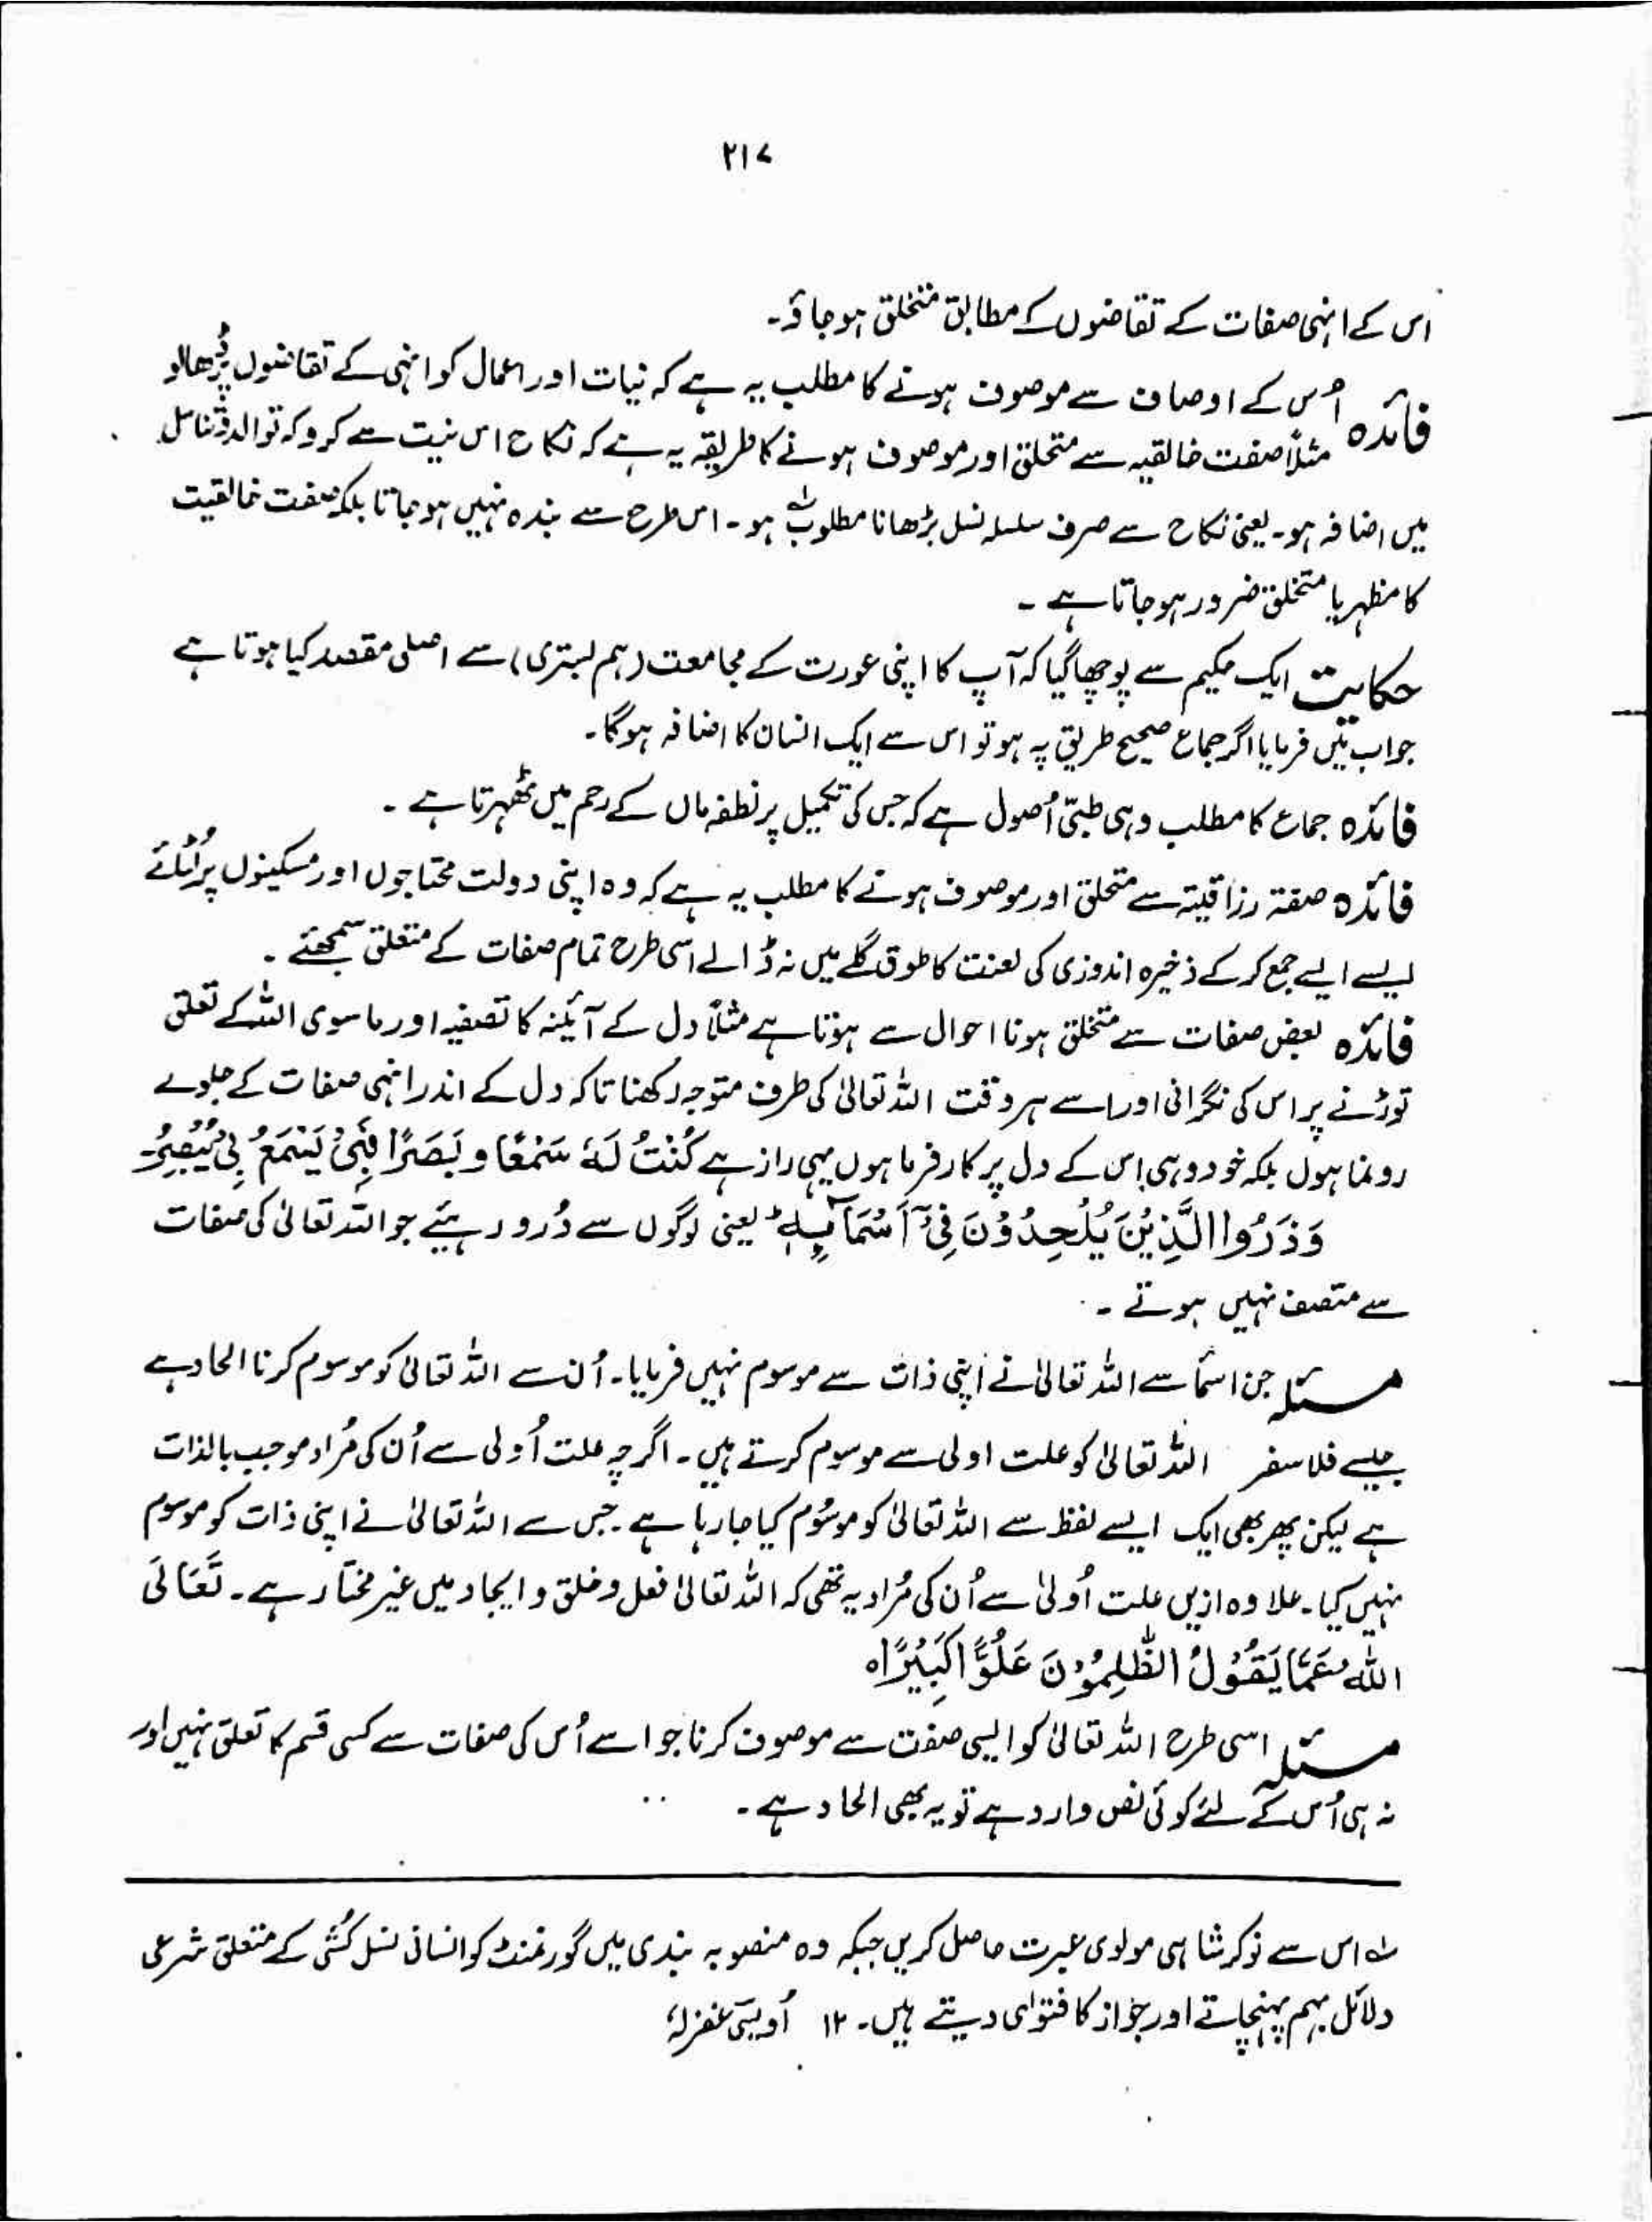 ۲۱۷
اس کے انہی صفات کے تقاضوں کے مطابق متخلق ہوجاؤ۔
فائدہ اُس کے اوصاف سے موصوف ہونے کا مطلب یہ ہے کہ نیات اور اعمال کو انہی کے تقاضوں پر ڈھالو
مثلاً صفت خالقیہ سے متخلق اور موصوف ہونے کا طریقہ یہ ہے کہ نکاح اس نیت سے کرو کہ توالد و تناسل
میں اضافہ ہو۔ یعنی نکاح سے صرف سلسلہ نسل بڑھانا مطلوب ہو۔ اس طرح سے بندہ نہیں ہوجاتا بلکہ صفت خالقیت
کا مظہر یا متخلق ضرور ہوجاتا ہے ۔
حکایت ایک حکیم سے پوچھا گیا کہ آپ کا اپنی عورت کے مجامعت (ہم بستری) سے اصلی مقصد کیا ہوتا ہے
جواب میں فرمایا اگر جماع صحیح طریق پہ ہو تو اس سے ایک انسان کا اضافہ ہوگا۔
فائدہ جماع کا مطلب وہی طبّی اُصول ہے کہ جس کی تکمیل پر نطفہ ماں کے رحم میں ٹھہرتا ہے ۔
فائدہ صفۃ رزاقیۃ سے متخلق اور موصوف ہونے کا مطلب یہ ہے کہ وہ اپنی دولت محتاجوں اور مسکینوں پر لُٹائے
ایسے ایسے جمع کرکے ذخیرہ اندوزی کی لعنت کا طوق گلے میں نہ ڈالے اسی طرح تمام صفات کے متعلق سمجھئے ۔
فائدہ بعض صفات سے متخلق ہونا احوال سے ہوتا ہے مثلاً دل کے آئینہ کا تصفیہ اور ماسوی اللہ کے تعلق
توڑنے پر اس کی نگرانی اور اسے ہر وقت اللہ تعالیٰ کی طرف متوجہ رکھنا تاکہ دل کے اندر انہی صفات کے جلوے
رونما ہوں بلکہ خود وہی اس کے دل پر کارفرما ہوں یہی راز ہے کُنْتُ لَہٗ سَمْعًا وبَصَرًا فَبِیْ یَسْمَعُ بِیْ یُبْصِرُ۔
وَذَرُوا الَّذِیْنَ یُلْحِدُوْنَ فِیْٓ اَسْمَآئِہٖ ؕ یعنی لوگوں سے دُور رہیئے جو اللہ تعالیٰ کی صفات
سے متصف نہیں ہوتے ۔
مسئلہ جن اسمأ سے اللہ تعالیٰ نے اپنی ذات سے موسوم نہیں فرمایا۔ اُن سے اللہ تعالیٰ کو موسوم کرنا الحاد ہے
جیسے فلاسفر اللہ تعالیٰ کو علت اولی سے موسوم کرتے ہیں۔ اگرچہ علت اُولی سے اُن کی مُراد موجب بالذات
ہے لیکن پھر بھی ایک ایسے لفظ سے اللہ تعالیٰ کو موسُوم کیا جا رہا ہے ۔ جس سے اللہ تعالیٰ نے اپنی ذات کو موسوم
نہیں کیا۔ علاوہ ازیں علت اُولیٰ سے اُن کی مُراد یہ تھی کہ اللہ تعالیٰ فعل و خلق و ایجاد میں غیر مختار ہے۔ تَعَالَی
اللہُ عَمَّا یَقُوْلُ الظّٰلِمُوْنَ عَلُوًّا کَبِیْرًاہ
مسئلہ اسی طرح اللہ تعالیٰ کو ایسی صفت سے موصوف کرنا جو اسے اُس کی صفات سے کسی قسم کا تعلق نہیں اور
نہ ہی اُس کے لئے کوئی نص وارد ہے تو یہ بھی الحاد ہے۔
لہ اس سے نوکر شاہی مولوی عبرت حاصل کریں جبکہ وہ منصوبہ بندی میں گورنمنٹ کو انسانی نسل کُشی کے متعلق شرعی
دلائل بہم پہنچاتے اور جواز کا فتوٰی دیتے ہیں۔ ۱۲ اُویسی غفرلہٗ